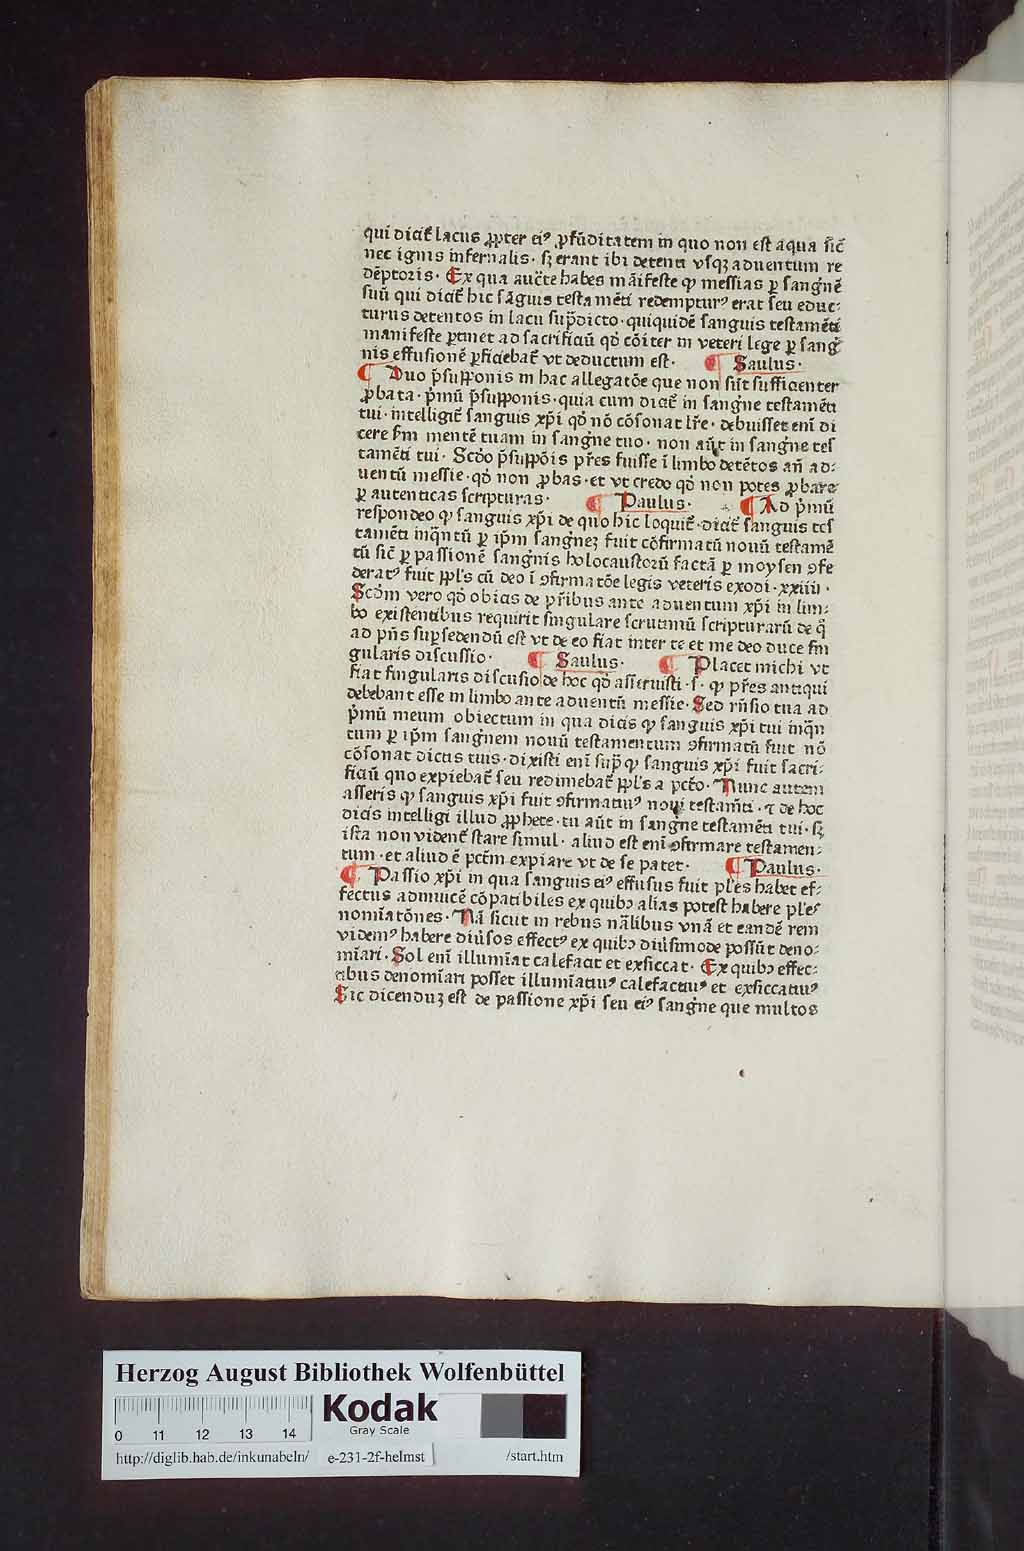 qui dicit̄ lacus ꝓpter ei⁹ ꝓfūditatem in quo non est aqua sic̄
nec ignis infernalis · sꝫ erant ibi detenti vsqꝫ aduentum re
dēptoris · Ex qua auc̄te habes māifeste ꝙ messias ꝑ sangͥnē
suū qui dicit̄ hic sāguis testamēti redemptur⁹ erat seu educ⸗
turus detentos in lacu sup̄dicto · quiquidē sanguis testamēti
manifeste ꝑtinet ad sacrificiū qd̄ cōiter in veteri lege ꝑ sangͥ
nis effusionē ꝑficiebat̄ vt deductum est · ¶ Saulus ·
¶ Duo p̄supponis in hac allegatōe que non sūt sufficienter
ꝓbata · pͥmū p̄supponis · quia cum dicit̄ in sangͥne testamēti
tui · intelligit̄ sanguis xp̄i qd̄ nō cōsonat lr̄e · debuisset enī di
cere sm̄ mentē tuam in sangͥne tuo · non aūt in sangͥne tes
tamēti tui · Scd̄o p̄suppōis pr̄es fuisse ī limbo detētos an̄ ad⸗
uentū messie · qd̄ non ꝓbas · et vt credo qd̄ non potes ꝓbare
ꝑ autenticas scripturas · ¶ Paulus · ¶ Ad pͥmū
respondeo ꝙ sanguis xp̄i de quo hic loquit̄ · dicit̄ sanguis tes
tamēti inqͣntū ꝑ ip̄m sangͥneꝫ fuit cōfirmatū nouū testamē
tū sic̄ ꝑ passionē sangͥnis holocaustorū factā ꝑ moysen ꝯfe
derat⁹ fuit ppl̄s cū deo ī ꝯfirmatōe legis veteris exodi · xxiiii ·
Scd̄m vero qd̄ obicis de pr̄ibus ante aduentum xp̄i in lim⸗
bo existentibus requirit singulare scrutiniū scripturarū de qͣ
ad pn̄s suꝑsedendū est vt de eo fiat inter te et me deo duce sin
gularis discussio · ¶ Saulus · ¶ Placet michi vt
fiat singularis discusio de hoc qd̄ asseruisti · s · ꝙ pr̄es antiqui
debebant esse in limbo ante aduentū messie · Sed rn̄sio tua ad
pͥmū meum obiectum in qua dicis ꝙ sanguis xp̄i tui inqͣn
tum ꝑ ip̄m sangͥnem nouū testamentum ꝯfirmatū fuit nō
cōsonat dictis tuis · dixisti enī supͣ ꝙ sanguis xp̄i fuit sacri⸗
ficiū quo expiebat̄ seu redimebat̄ ppl̄s a pctō · Nunc autem
asseris ꝙ sanguis xp̄i fuit ꝯfirmatiu⁹ noui testam̄ti · ⁊ de hoc
dicis intelligi illud ꝓphete · tu aūt in sangͥne testamēti tui · sꝫ
ista non vident̄ stare simul · aliud est enī ꝯfirmare testamen⸗
tum · et aliud ē pctm̄ expiare vt de se patet · ¶ Paulus ·
¶ Passio xp̄i in qua sanguis ei⁹ effusus fuit pl̄es habet ef⸗
fectus adinuicē cōpatibiles ex quibꝰ alias potest habere pl̄es
nomīatōnes · Nā sicut in rebus nālibus vnā et eandē rem
videm⁹ habere diūsos effect⁹ ex quibꝰ diūsimode possūt deno⸗
mīari · Sol enī illumīat calefacit et exsiccat · Ex quibꝰ effec⸗
tibus denomīari posset illumīatiu⁹ calefactiu⁹ et exsiccatiu⁹
Sic dicenduꝫ est de passione xp̄i seu ei⁹ sangͥne que multos
Herzog August Bibliothek Wolfenbüttel
0 11 12 13 14
Kodak
Gray Scale
http://diglib.hab.de/inkunabeln/ e-231-2f-helmst /start.htm